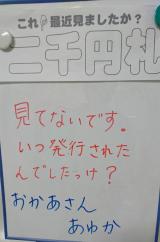 これ最近見ましたか？
二千円札
見てないです。
いつ発行された
んでしたっけ？
おかあさん
あゆか